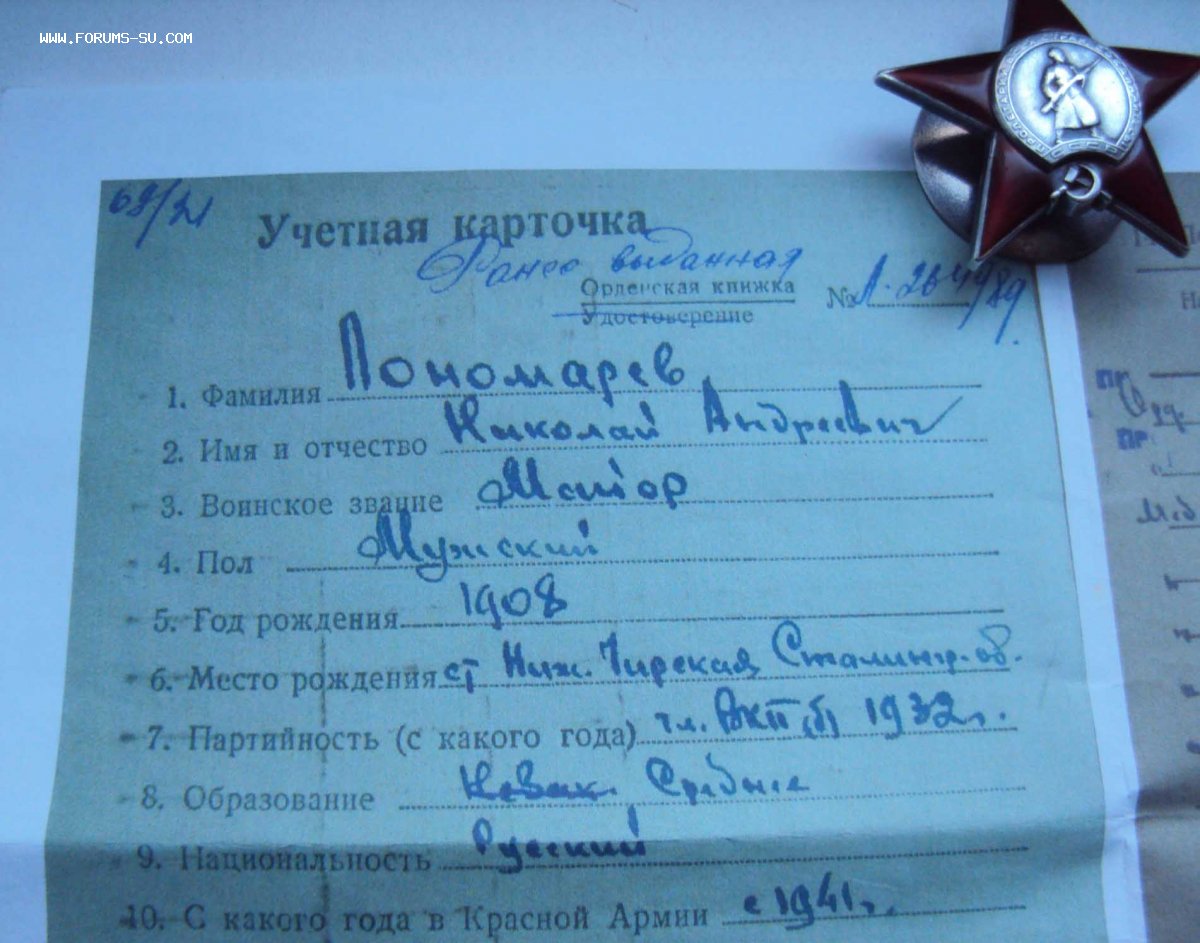 WWW.FORUMS-SU.COM
68/21
Учетная карточка
Ранее выданная
Орденская книжка
Удостоверение
№ Л-264989
1. Фамилия Пономарев
2. Имя и отчество Николай Андреевич
3. Воинское звание Майор
4. Пол Мужской
5. Год рождения 1908
6. Место рождения ст Ниж. Чирская Сталингр. об.
7. Партийность (с какого года) чл. ВКП(б) 1932г.
8. Образование Незак. Средние
9. Национальность Русский
10. С какого года в Красной Армии с 1941г.